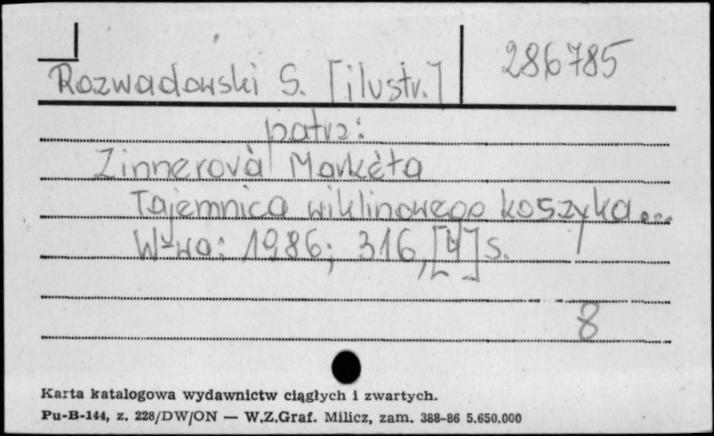 Rozwadowski S. [ilustr.] 286785
patrz:
Zinnerová Markéta
Tajemnica wiklinowego koszyka...
W-wa: 1986; 316,[4] s.
8
Karta katalogowa wydawnictw ciągłych i zwartych.
Pu-B-144, z. 228/DW/ON — W.Z.Graf. Milicz, zam. 388-86 5.650.000